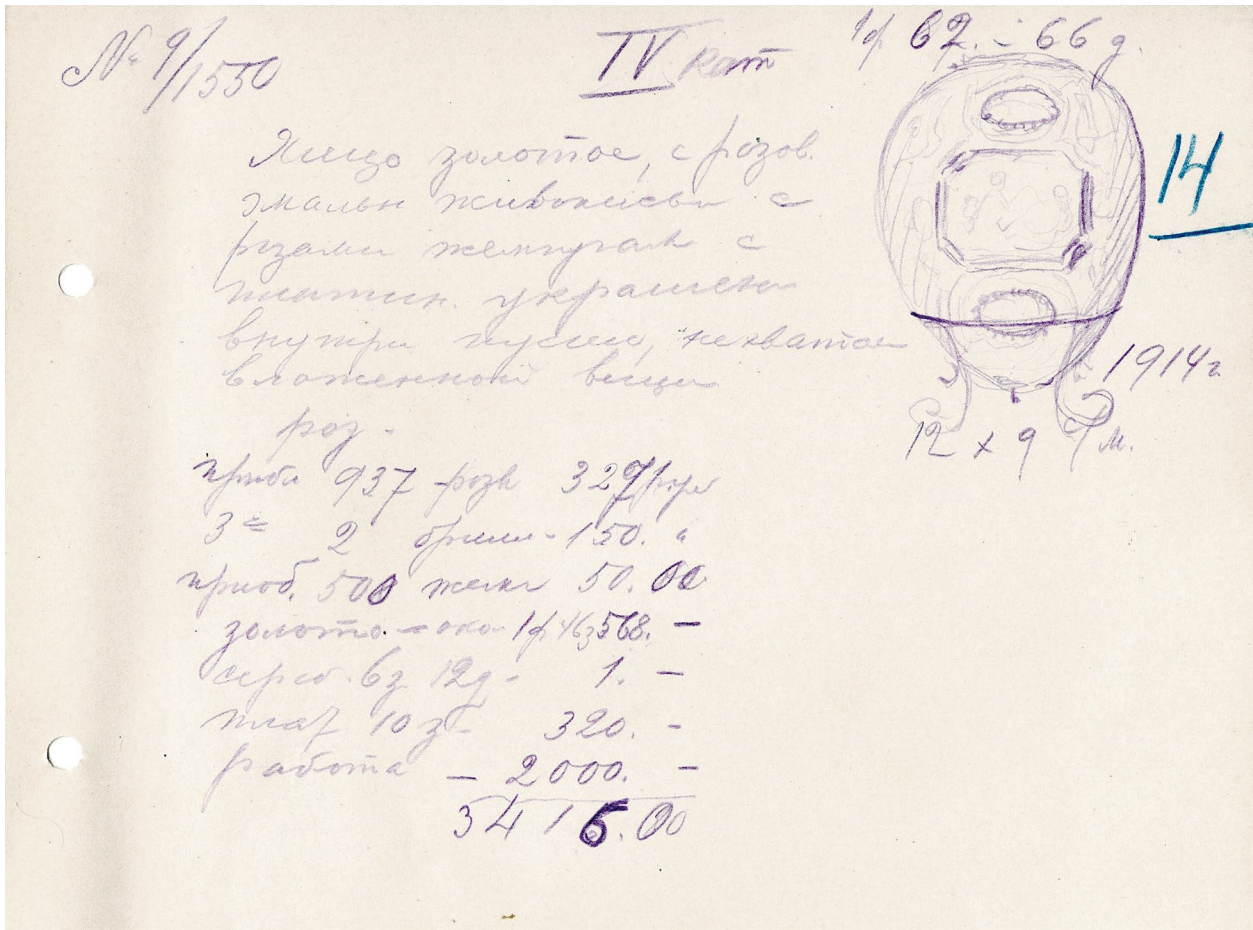 № 9/1550
IV кат
1ф 62. - 66 д.
14
Яицо золотое, с розов.
эмалью живописью с
розами жемчугам с
платин. украшен
внутри пусто, нехватает
вложенной вещи
1914 г
12 х 9
м.
роз -
приб 937 розы 327 руб
2 брил - 150. "
приб. 500 жемч 50. 00
золото - око 1ф 46з 568. -
сереб. 6з 12д - 1. -
плат 10 з - 320. -
работа - 2000. -
3416.00